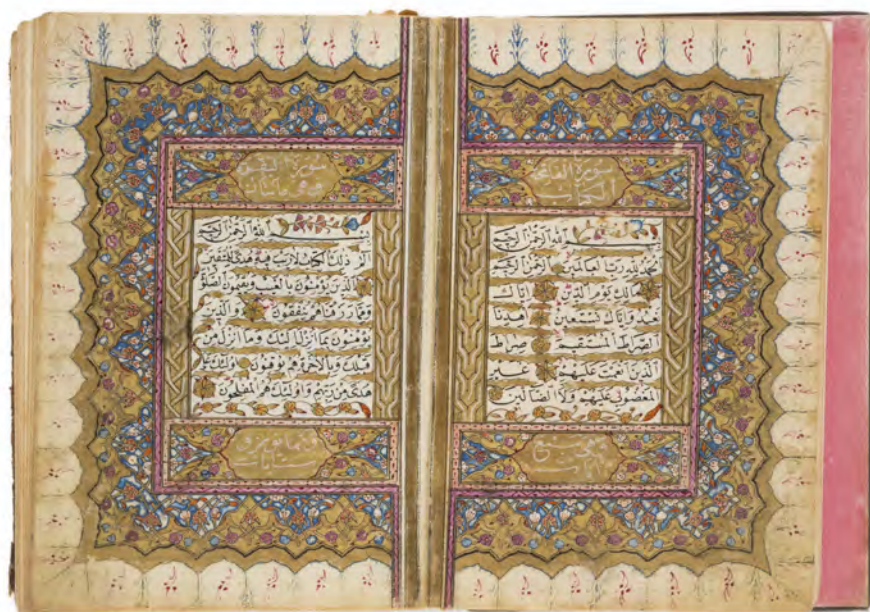 سورة الفاتحة
الكتاب
بسم الله الرحمن الرحيم
الحمد لله رب العالمين الرحمن الرحيم
مالك يوم الدين اياك
نعبد واياك نستعين اهدنا
الصراط المستقيم صراط
الذين انعمت عليهم غير
المغضوب عليهم ولا الضالين
سورة البقرة
بسم الله الرحمن الرحيم
الم ذلك الكتاب لا ريب فيه هدى للمتقين
الذين يؤمنون بالغيب ويقيمون الصلوة
ومما رزقناهم ينفقون والذين
يؤمنون بما انزل اليك وما انزل من
قبلك وبالاخرة هم يوقنون اولئك على
هدى من ربهم واولئك هم المفلحون